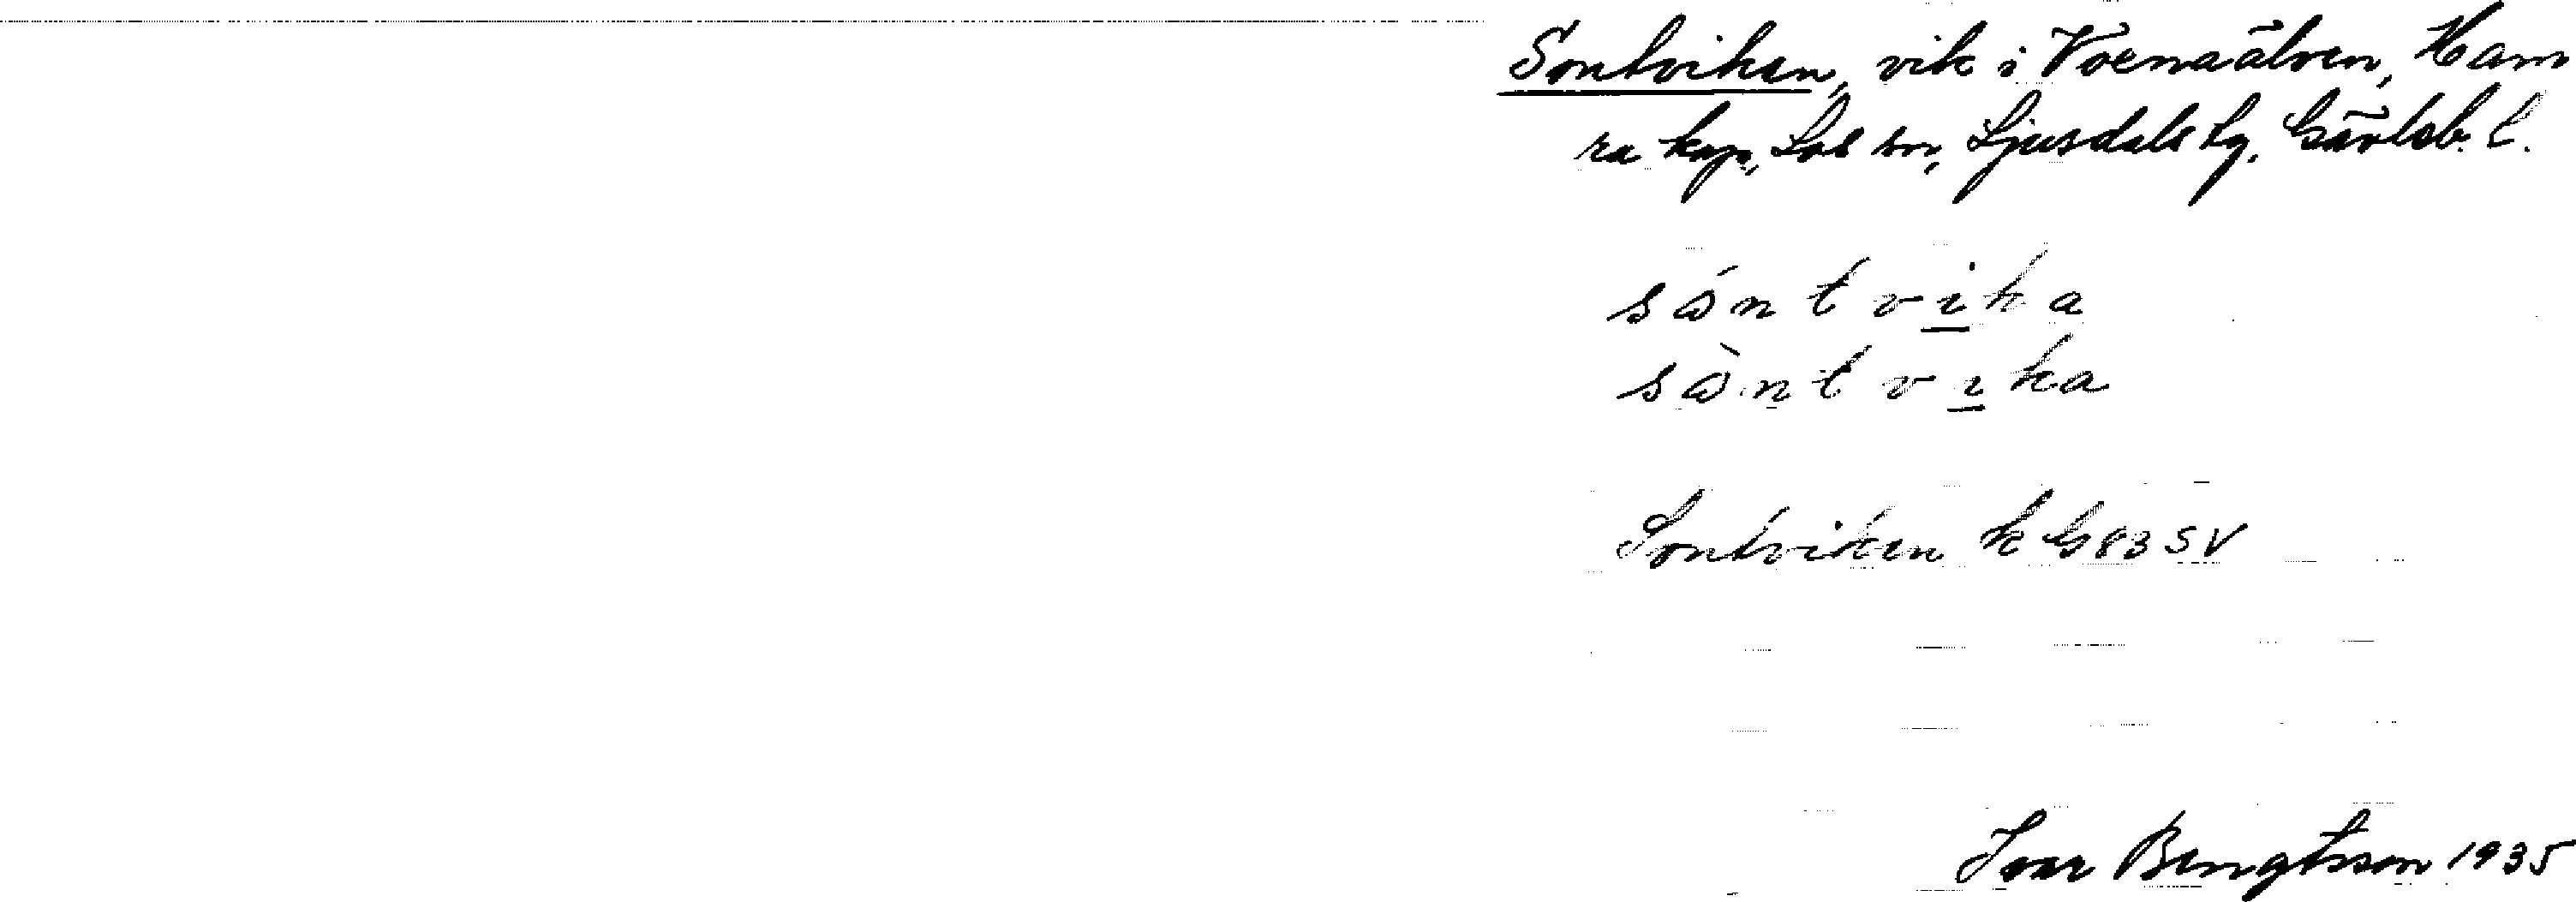 Sontviken, vik i Voxnaälven, Ham
ra kap, Los sn, Ljusdals tg. Gävleb. l.
sántvika
sàntvika
Sontviken k G 83 SV
Ivar Bengtsson 1935